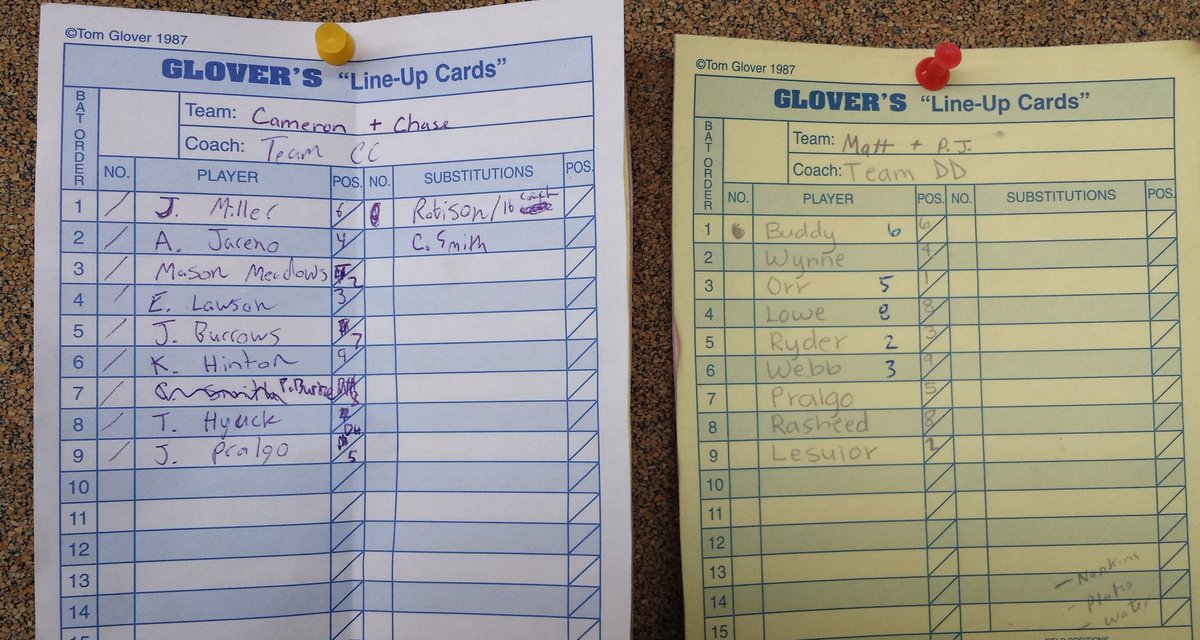 ©Tom Glover 1987
GLOVER'S "Line-Up Cards"
BAT ORDER
Team: Cameron + Chase
Coach: Team CC
NO. PLAYER POS. NO. SUBSTITUTIONS POS.
1 J. Miller 6 Robison/16
2 A. Jareno 4 C. Smith
3 Mason Meadows 2
4 E. Lawson 3
5 J. Burrows 7
6 K. Hinton 9
7
8 T. Hyuck DH
9 J. Pralgo 5
10
11
12
13
14
15
©Tom Glover 1987
GLOVER'S "Line-Up Cards"
BAT ORDER
Team: Matt + P.J.
Coach: Team DD
NO. PLAYER POS. NO. SUBSTITUTIONS POS.
1 Buddy 6 6
2 Wynne 4
3 Orr 5 1
4 Lowe 8 8
5 Ryder 2 3
6 Webb 3 9
7 Pralgo 5
8 Rasheed 8
9 Lesulor 2
10
11
12
13 - Napkins
14 - Plates
- Water
15
FIELD POSITIONS